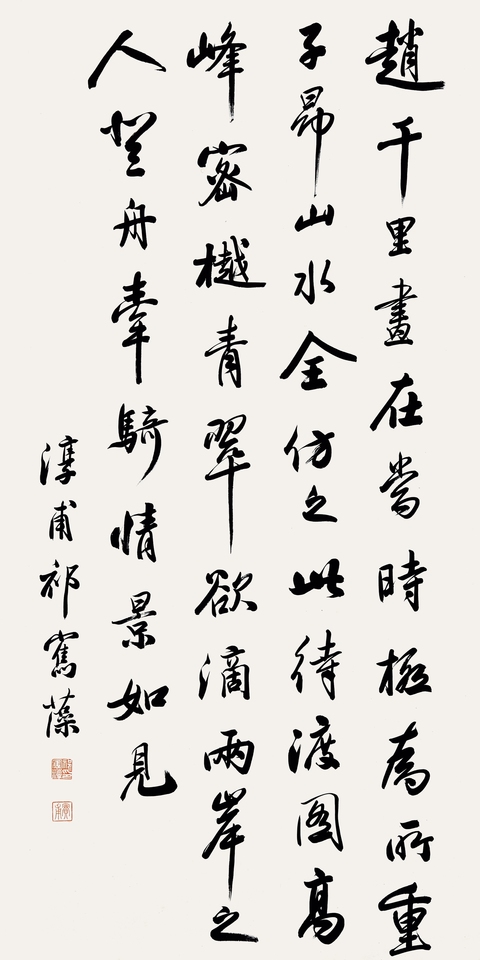 趙千里畫在當時極為所重
子昂山水全仿之此待渡图高
峰密樾青翠欲滴兩岸之
人登舟牽騎情景如見
淳甫祁寯藻